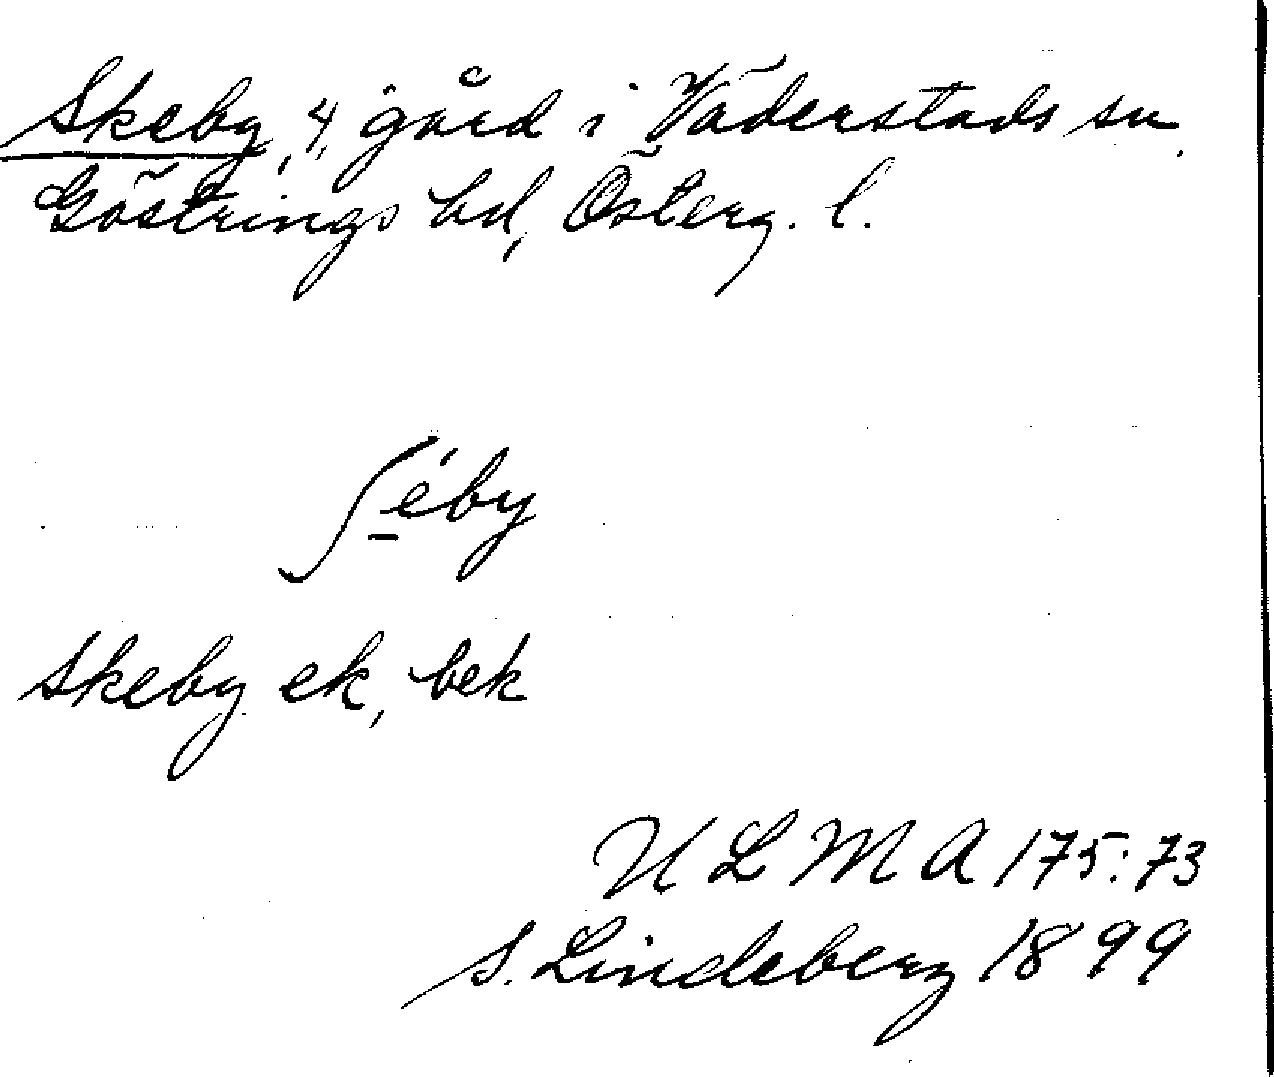 Skeby, 4, gård i Väderstads sn,
Göstrings hd, Österg. l.
ʃe̠´by
Skeby ek, bek
ULMA 175:73
S. Lindeberg 1899